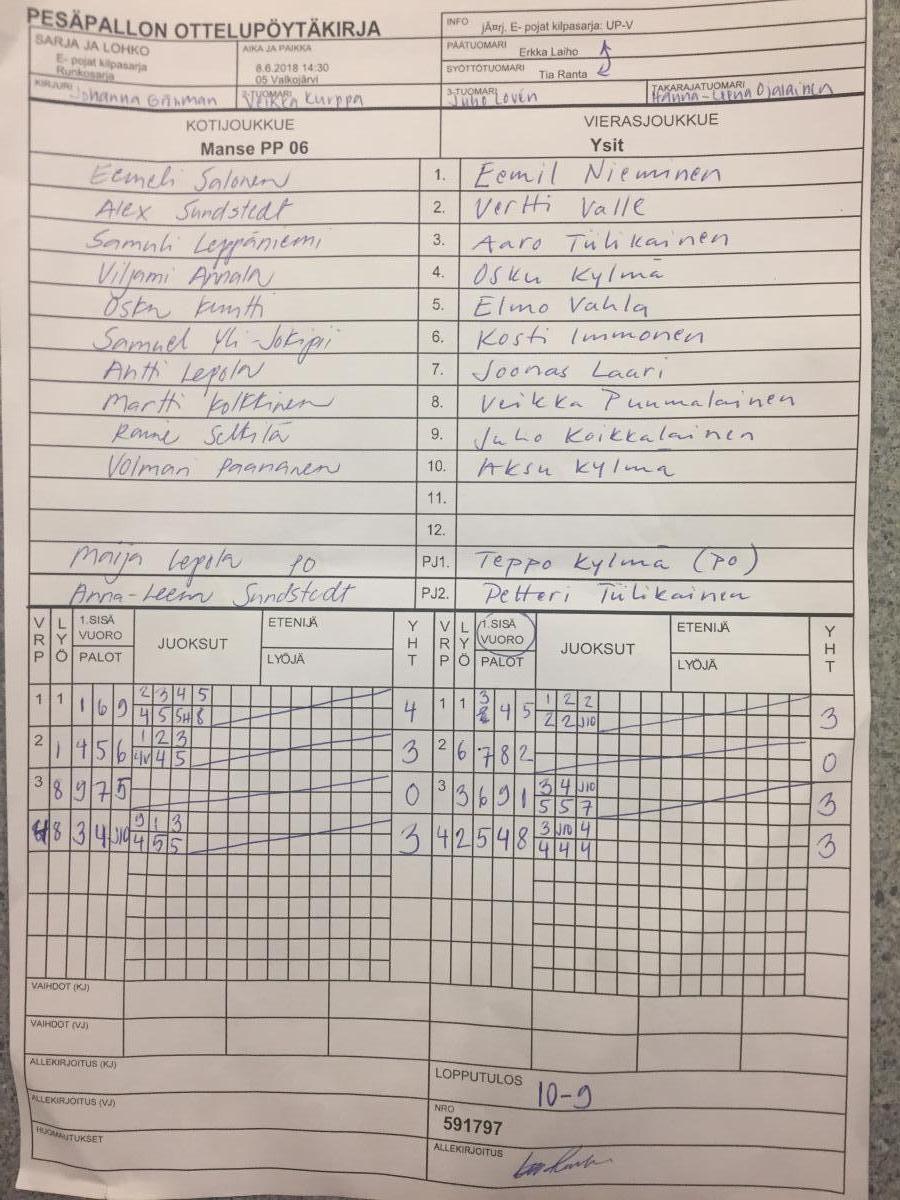 PESÄPALLON OTTELUPÖYTÄKIRJA
INFO jÃ¤rj. E- pojat kilpasarja: UP-V
SARJA JA LOHKO
E- pojat kilpasarja
Runkosarja
AIKA JA PAIKKA
8.6.2018 14:30
05 Valkojärvi
PÄÄTUOMARI Erkka Laiho
SYÖTTÖTUOMARI Tia Ranta
KIRJURI Johanna
2-TUOMARI Veikka Kurppa
3-TUOMARI Juho Lovén
TAKARAJATUOMARI Hanna-Leena Ojalainen
KOTIJOUKKUE VIERASJOUKKUE
Manse PP 06 Ysit
Eemeli Salonen 1. Eemil Nieminen
Alex Sundstedt 2. Vertti Valle
Samuli Leppäniemi 3. Aaro Tiilikainen
Viljami Annala 4. Osku Kylmä
Osku 5. Elmo Vahla
Samuel Yli-Jokipii 6. Kosti Immonen
Antti Lepola 7. Joonas Laari
Martti 8. Veikka Puumalainen
9. Juho Koikkalainen
Volmari Paananen 10. Aksu Kylmä
11.
12.
Maija Lepola PO PJ1. Teppo Kylmä (PO)
Anna-Leena Sundstedt PJ2. Petteri Tiilikainen
VRP LYÖ 1.SISÄ VUORO PALOT JUOKSUT ETENIJÄ LYÖJÄ YHT VRP LYÖ 1.SISÄ VUORO PALOT JUOKSUT ETENIJÄ LYÖJÄ YHT
1 1 1 6 9 2 3 4 5 4 1 1 4 5 1 2 2 3
4 5 5H 8 2 2 J10
2 1 4 5 6 1 2 3 3 2 6 7 8 2 0
4V 4 5
3 8 9 7 5 0 3 3 6 9 1 3 4 J10 3
5 5 7
4 8 3 4 J10 9 1 3 3 4 2 5 4 8 3 J10 4 3
4 5 5 4 4 4
VAIHDOT (KJ)
VAIHDOT (VJ)
ALLEKIRJOITUS (KJ)
LOPPUTULOS 10-9
ALLEKIRJOITUS (VJ)
NRO
591797
HUOMAUTUKSET
ALLEKIRJOITUS